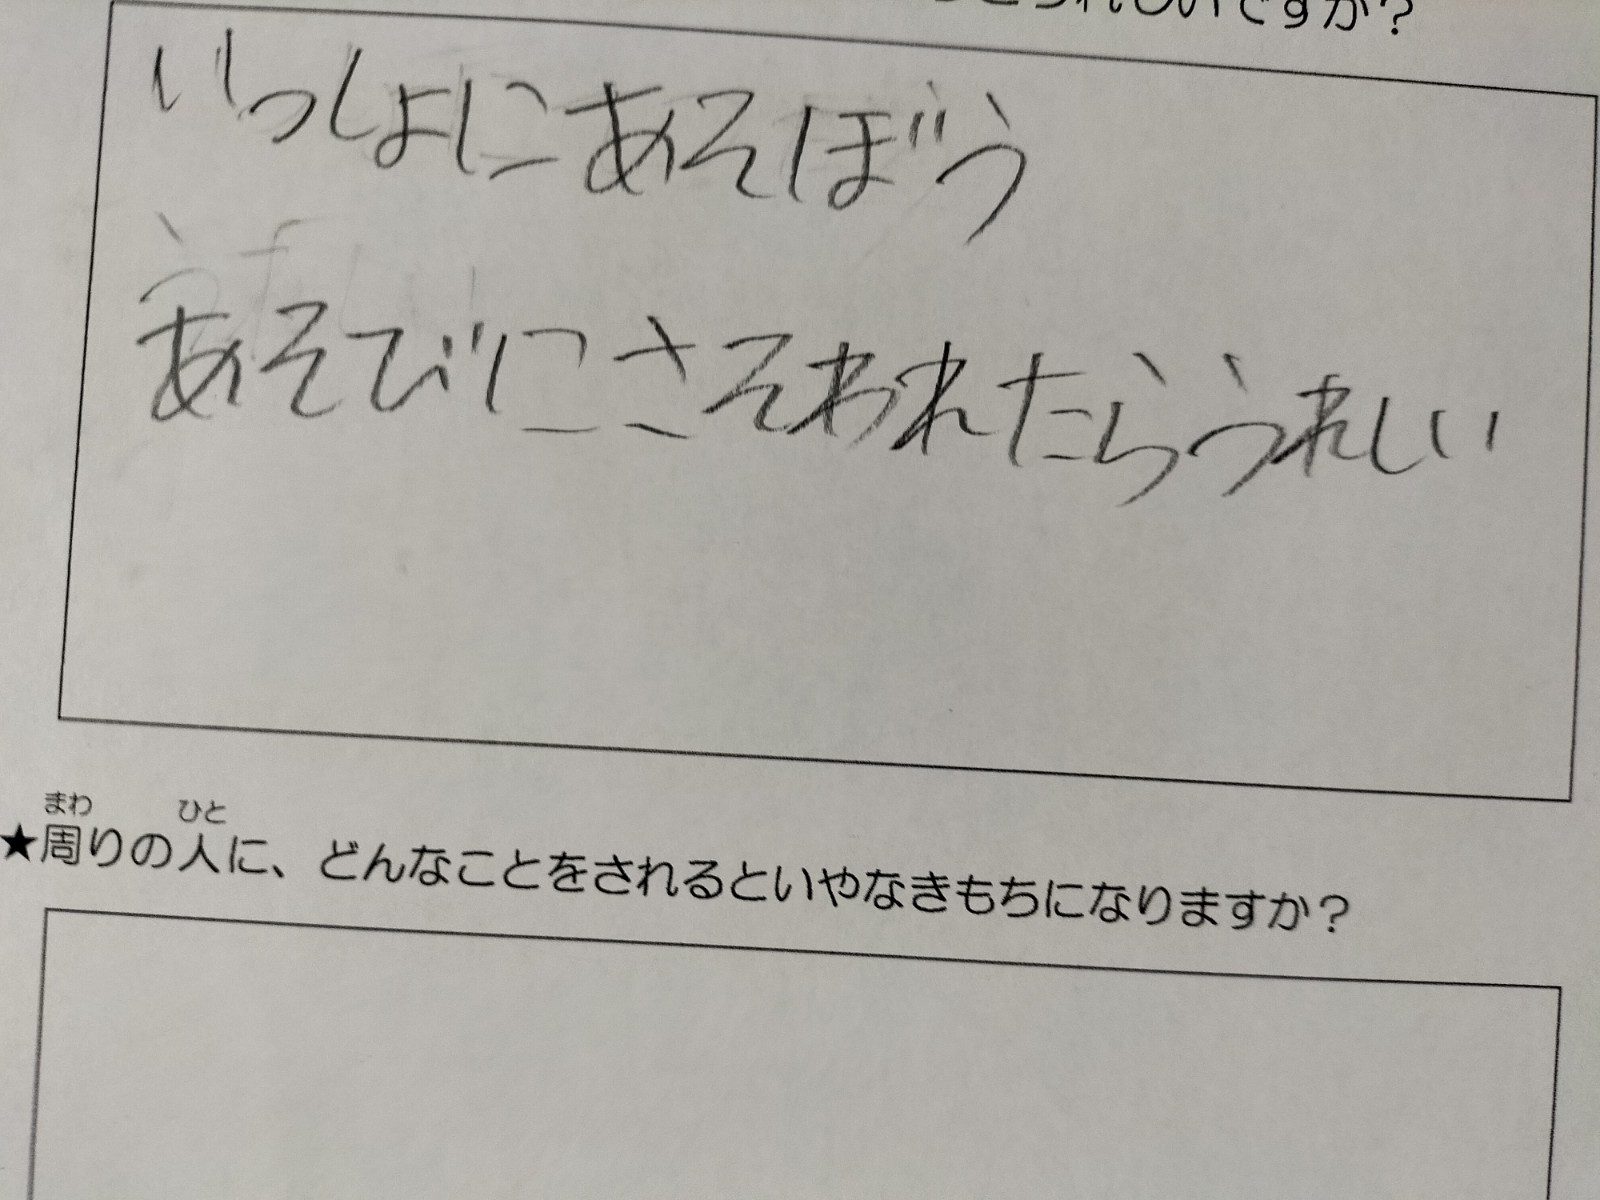 れしいですか?
いっしょにあそぼう
あそびにさそわれたらうれしい
まわ ひと
★周りの人に、どんなことをされるといやなきもちになりますか?